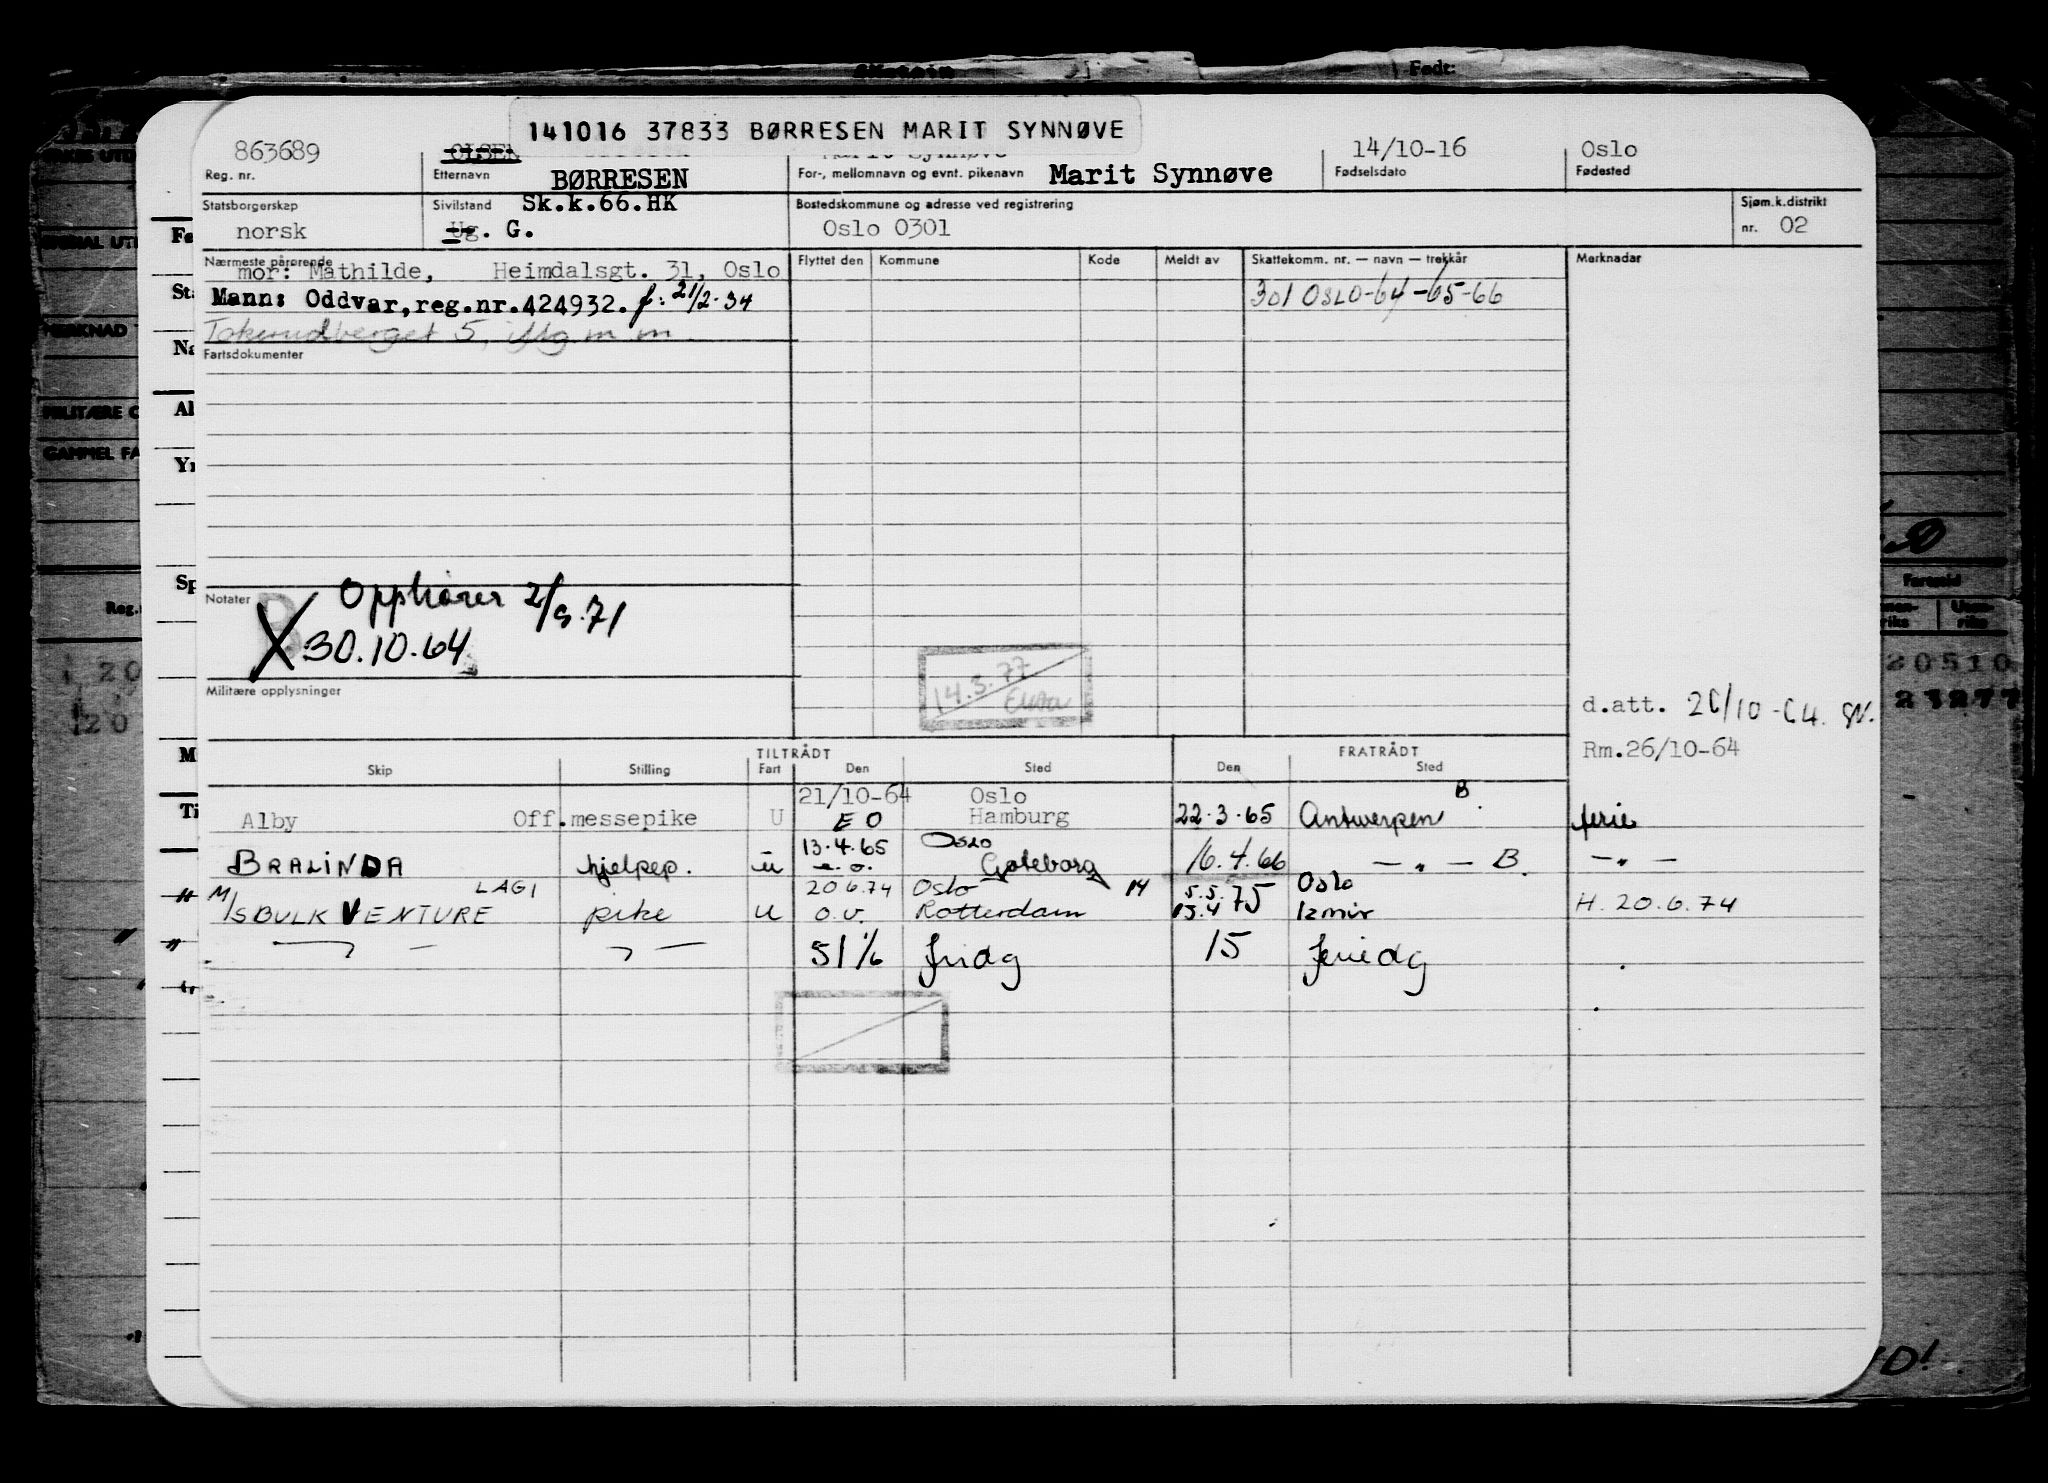 Født:
141016 37833 BØRRESEN MARIT SYNNØVE
863689 OLSEN 14/10-16 Oslo
Reg. nr. Etternavn BØRRESEN For-, mellomnavn og evnt. pikenavn Marit Synnøve Fødselsdato Fødested
Statsborgerskap Sivilstand Sk.k.66.HK Bostedskommune og adresse ved registrering Sjøm.k.distrikt
norsk Ug. G. Oslo 0301 nr. 02
Nærmeste pårørende Flyttet den Kommune Kode Meldt av Skattekomm. nr. — navn — trekkår Merknader
mor: Mathilde, Heimdalsgt. 31, Oslo
Mann: Oddvar, reg.nr.424932. f: 21/2-34 301 OSLO-64-65-66
Tokerudberget 5,
Fartsdokumenter
Notater Opphører 2/9.71
X 30.10.64
14.3.77
Militære opplysninger
d.att. 26/10-64.
Rm.26/10-64
TILTRÅDT FRATRÅDT
Skip Stilling Fart Den Sted Den Sted
21/10-64 Oslo B
Alby Off.messepike U EO Hamburg 22.3.65 Antwerpen ferie
13.4.65 Oslo
BRALINDA hjelpep. u e.o. Gøteborg 16.4.66 — " — B. — " —
LAGI 20.6.74 Oslo 14 5.5. 75 Oslo
" M/S BULK VENTURE pike u o.v. Rotterdam 13.4 Izmir H. 20.6.74
" 51 1/6 fridg 15 feriedg
20510